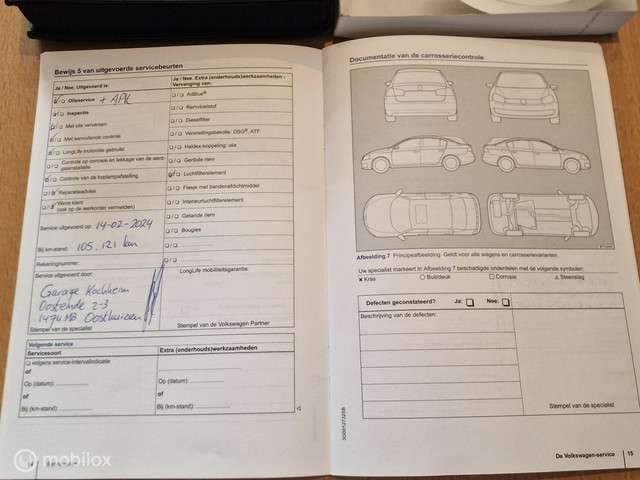 Bewijs 5 van uitgevoerde servicebeurten
Ja / Nee, Uitgevoerd is:
Olieservice + APK
Inspectie
Met olie verversen
Met aanvullende controle
LongLife motorolie gebruikt
Controle op corrosie en lekkage van de aard-
gasinstallatie
Controle van de koplampafstelling
Reparatieadvies
Wens klant
(ook op de werkorder vermelden)
Service uitgevoerd op: 14-02-2024
Bij km-stand: 105.121 km
Rekeningnummer:
Service uitgevoerd door:
Garage Kochheim
Oosteinde 2-3
1474 MB Oosthuizen
Stempel van de specialist
Ja / Nee, Extra (onderhouds)werkzaamheden -
Vervanging van:
AdBlue®
Remvloeistof
Dieselfilter
Versnellingsbakolie: DSG®, ATF
Haldex-koppeling: olie
Getande riem
Luchtfilterelement
Flesje met bandenafdichtmiddel
Interieurluchtfilterelement
Getande riem
Bougies
LongLife mobiliteitsgarantie:
Stempel van de Volkswagen Partner
Volgende service
Servicesoort
Extra (onderhouds)werkzaamheden
volgens service-intervalindicatie
of
Op (datum):
of
Bij (km-stand):
Op (datum):
of
Bij (km-stand):
Documentatie van de carrosseriecontrole
Afbeelding 7 Principeafbeelding. Geldt voor alle wagens en carrosserievarianten
Uw specialist markeert in Afbeelding 7 beschadigde onderdelen met de volgende symbolen:
× Kras ○ Buil/deuk □ Corrosie △ Steenslag
Defecten geconstateerd? Ja: Nee:
Beschrijving van de defecten:
Stempel van de specialist
De Volkswagen-service 15
mobilox